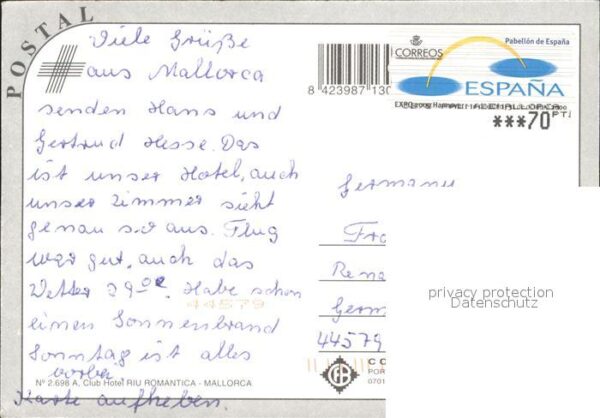 POSTAL
Viele Grüße
aus Mallorca
senden Hans und
Gertrud Hesse. Das
ist unser Hotel, auch
unser Zimmer sieht
genau so aus. Flug
war gut, auch das
Wetter 29°. Habe schon
einen Sonnenbrand
Sonntag ist alles
vorbei
Karte aufheben.
Nº 2.698 A, Club Hotel RIU ROMANTICA - MALLORCA
44579
8 423987 130
CORREOS
Pabellón de España
ESPAÑA
EXPO 2000
***70 PTA
Germany
Fra
Rena
Germ
44579
privacy protection
Datenschutz
CO
POR
0701